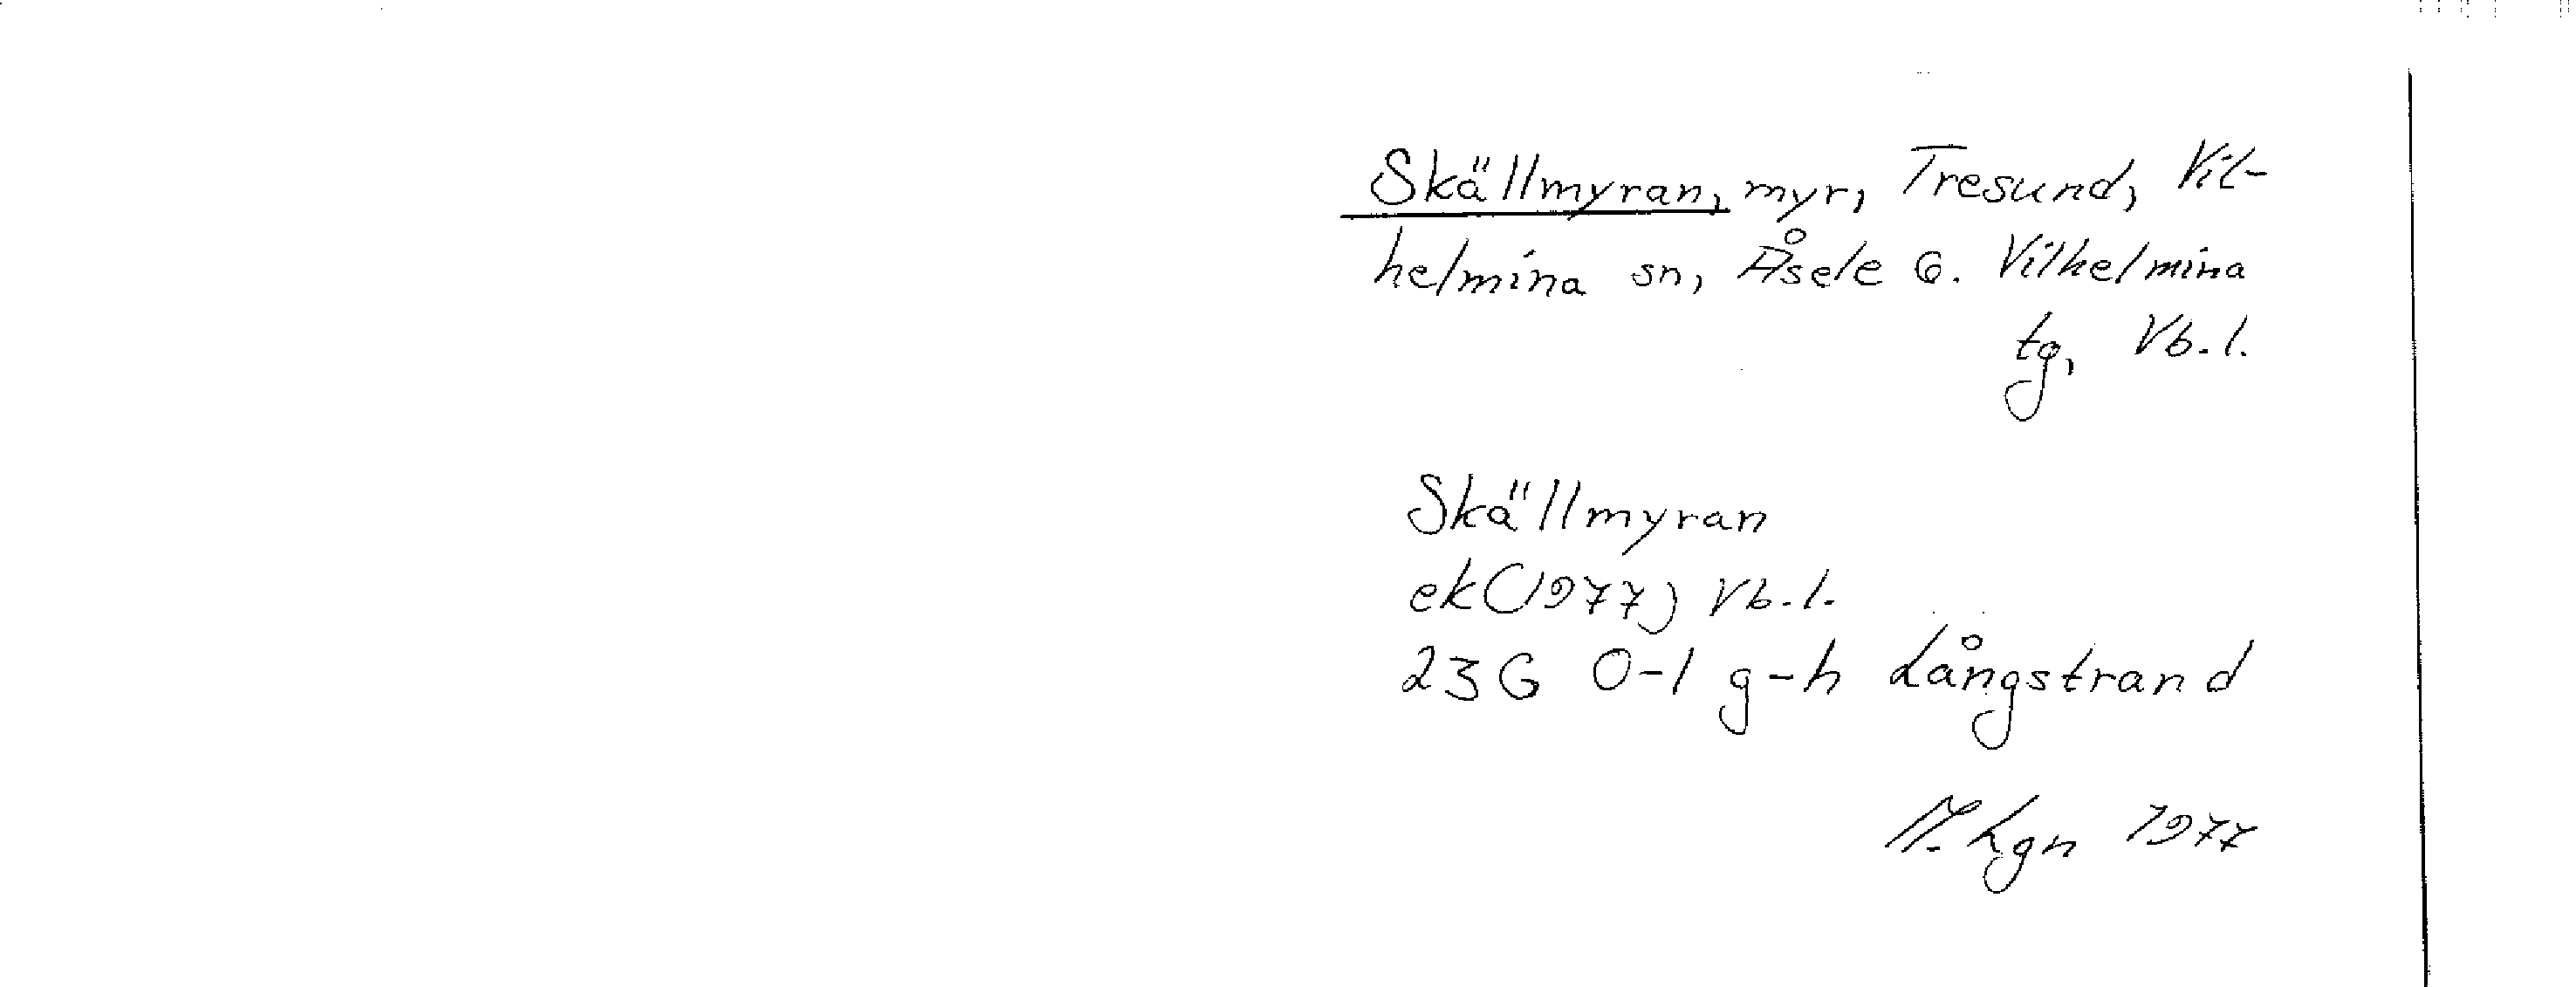 Skällmyran, myr, Tresund, Vil-
helmina sn, Åsele 6. Vilhelmina
tg, Vb.l.
Skällmyran
ek(1977) Vb.l.
23G 0-1 g-h Långstrand
Lgn 1977